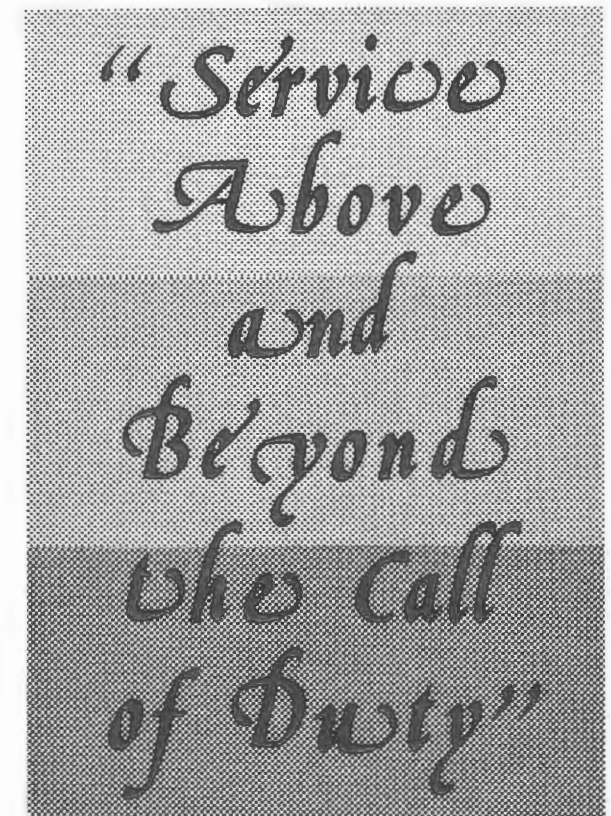 “Service
Above
and
Beyond
the Call
of Duty”